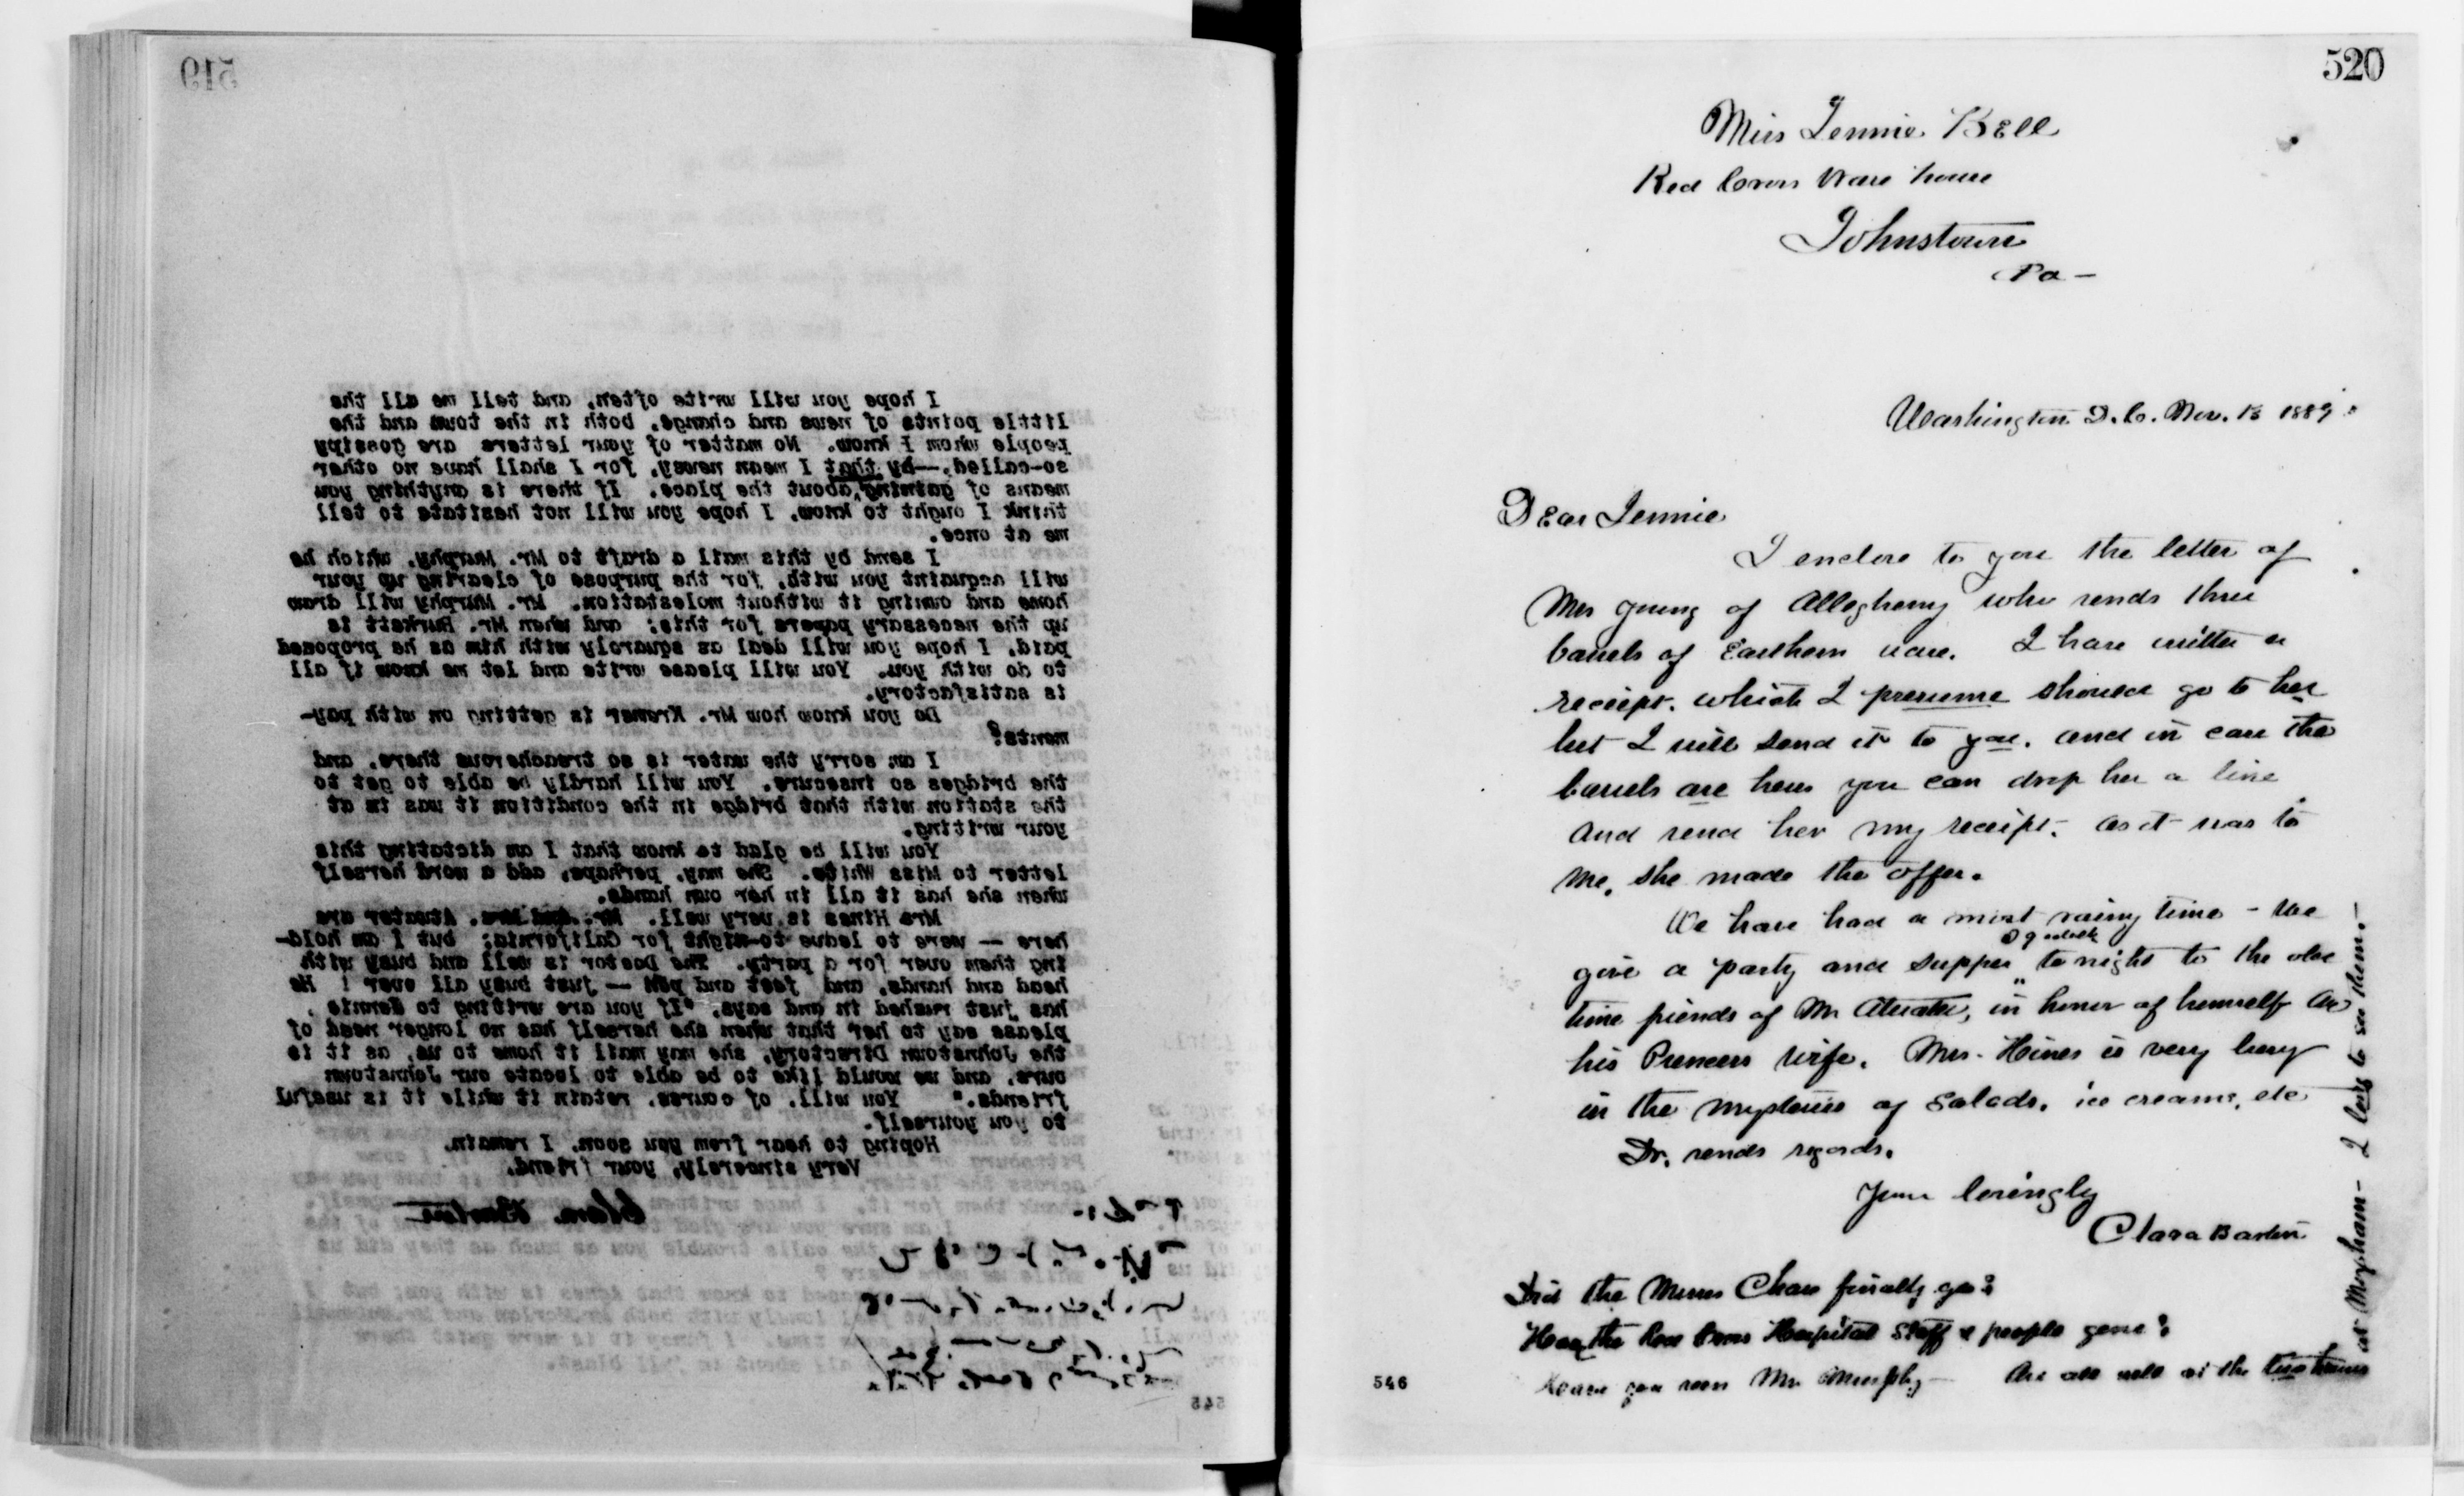 519
I hope you will write often, and tell me all the
little points of news and change, both in the town and the
people whom I know. No matter of your letters are gossipy
so-called,—by that I mean newsy, for I shall have no other
means of gaining, about the place. If there is anything you
think I ought to know, I hope you will not hesitate to tell
me at once.
I send by this mail a draft to Mr. Murphy, which he
will acquaint you with, for the purpose of clearing up your
home and owning it without molestation. Mr. Murphy will draw
up the necessary papers for this; and when Mr. Burkett is
paid, I hope you will deal as squarely with him as he proposed
to do with you. You will please write and let me know if all
is satisfactory.
Do you know how Mr. Kromer is getting on with pay-
ments?
I am sorry the water is so treacherous there, and
the bridges so insecure. You will hardly be able to get to
the station with that bridge in the condition it was in at
your writing.
You will be glad to know that I am dictating this
letter to Miss White. She may, perhaps, add a word herself
when she has it all in her own hands.
Mrs Hines is very well. Mr. and Mrs. Atwater are
here — were to leave to-night for California; but I am hold-
ing them over for a party. The Doctor is well and busy with
head and hands, and feet and pen — just busy all over ! He
has just rushed in and says, "If you are writing to Jennie,
please say to her that when she herself has no longer need of
the Johnstown Directory, she may mail it home to us, as it is
ours, and we would like to be able to locate our Johnstown
friends." You will, of course, retain it while it is useful
to you yourself.
Hoping to hear from you soon, I remain,
Very sincerely, your friend,
Clara Barton
545
520
Miss Jennie Bell
Red Cross Ware house
Johnstown
Pa —
Washington D.C. Nov. 13 1889
Dear Jennie
I enclose to you the letter of
Mrs Young of Allegheny who sends three
barrels of Earthern ware. I have written a
receipt, which I presume should go to her
but I will send it to you, and in case the
barrels are here you can drop her a line
and send her my receipt, as it was to
me, she made the offer.
We have had a most rainy time - We
give a party and supper to night to the old
time friends of Mr Atwater, in honor of himself and
his Pioneer wife. Mrs. Hines is very busy
in the mysteries of salads, ice creams, etc
Dr. sends regards.
Yours lovingly
Clara Barton
Did the Misses Chase finally go?
Have the Red Cross Hospital staff & people gone?
Have you seen Mr Murphy — Are all well at the two houses
at Moxham - I long to see them.—
546